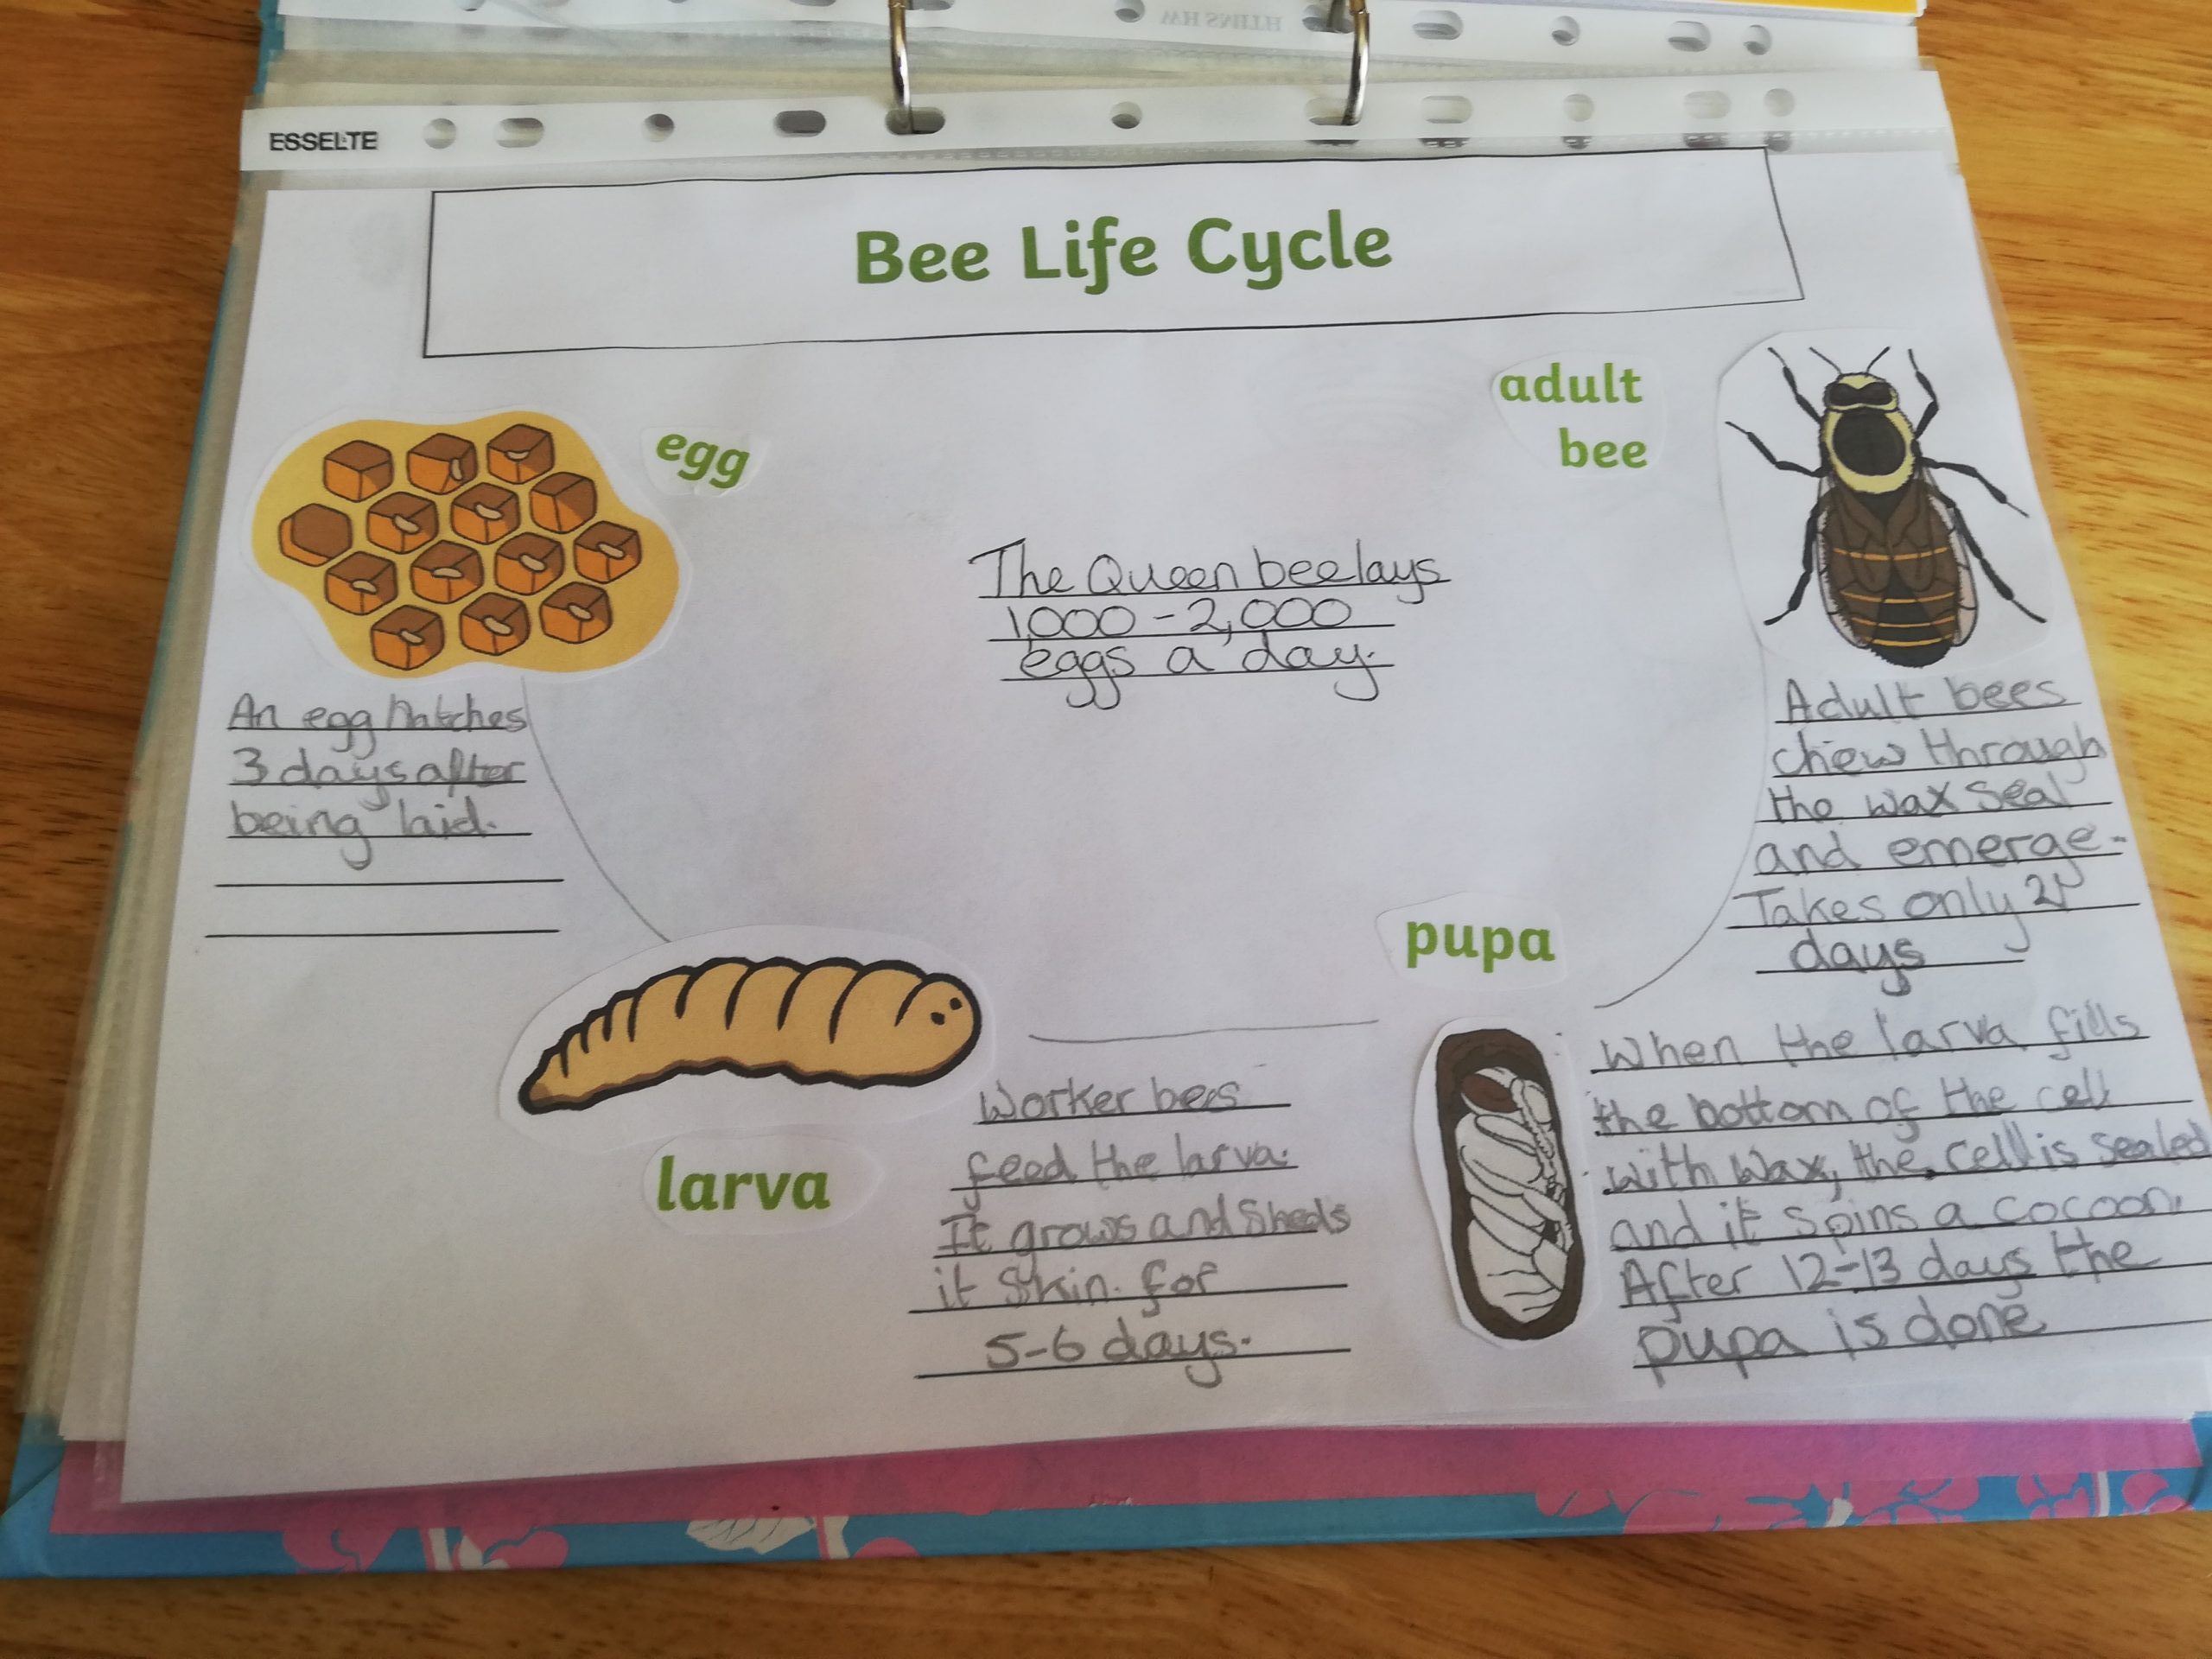 HTIMS HW
ESSELTE
Bee Life Cycle
egg
adult
bee
The Queen bee lays
1,000 - 2,000
eggs a day.
An egg hatches
3 days after
being laid.
Adult bees
chew through
the wax seal
and emerge.
Takes only 21
days
larva
Worker bees
feed the larva.
It grows and sheds
it skin. for
5-6 days.
pupa
When the larva fills
the bottom of the cell
with wax, the cell is sealed
and it spins a cocoon.
After 12-13 days the
pupa is done